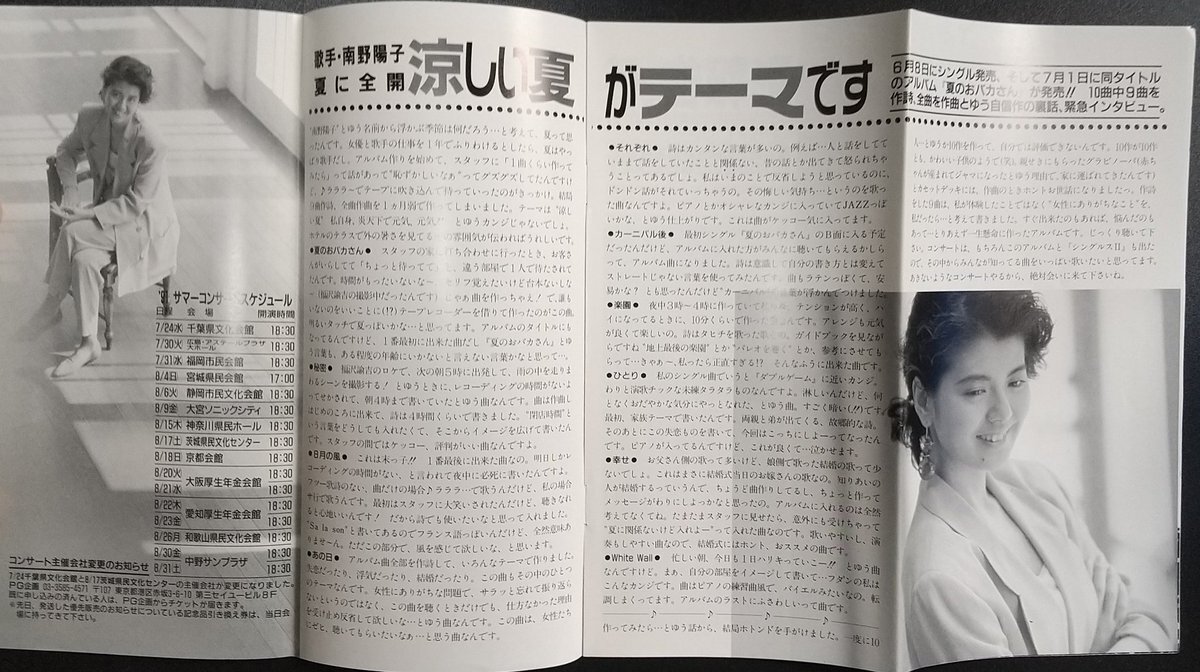 歌手・南野陽子
夏に全開
涼しい夏がテーマです
6月8日にシングル発売、そして7月1日に同タイトル
のアルバム「夏のおバカさん」が発売!! 10曲中9曲を
作詩、全曲を作曲とゆう自信作の裏話、緊急インタビュー。
'91 サマーコンサートスケジュール
日程 会場 開演時間
7/24水 千葉県文化会館 18:30
7/30火 アステールプラザ大ホール 18:30
7/31水 福岡市民会館 18:30
8/4日 宮城県民会館 17:00
8/6火 静岡市民文化会館 18:30
8/9金 大宮ソニックシティ 18:30
8/15木 神奈川県民ホール 18:30
8/17土 茨城県民文化センター 18:30
8/18日 京都会館 18:30
8/20火 大阪厚生年金会館 18:30
8/21水 18:30
8/22木 愛知厚生年金会館 18:30
8/23金 18:30
8/26月 和歌山県民文化会館 18:30
8/30金 中野サンプラザ 18:30
8/31土 18:30
コンサート主催会社変更のお知らせ
7/24千葉県文化会館と8/17茨城県民文化センターの主催会社が変更になりました。
PG企画 03-3585-4571 〒107 東京都港区赤坂3-6-10 第三セイユービル8F
既に申し込みの済んでいる人は、PG企画からチケットが届きます。
※先日、発送した優先販売のお知らせについている記念品引き換え券は、当日会
場に持ってきて下さい。
"南野陽子"とゆう名前から浮かぶ季節は何だろう…と考えて、夏って思
ったんです。女優と歌手の仕事を1年でふりわけるとしたら、夏はやっ
ぱり歌手だし。アルバム作りを始めて、スタッフに「1曲くらい作って
みたら」って話があって"恥ずかしいなぁ"ってグズグズしてたんですけ
ど、♪ラララーでテープに吹き込んで持っていったのがきっかけ。結局
9曲作詩、全曲作曲を1ヵ月弱で作ってしまいました。テーマは"涼し
い夏" 私自身、炎天下で元気、元気!! とゆうカンジじゃないでしょ。
ホテルのテラスで外の暑さを見てる の雰囲気が伝わればうれしいです。
●夏のおバカさん● スタッフの家に打ち合わせに行ったとき、お客さ
んがいらしてて「ちょっと待ってて」と、違う部屋で1人で待たされて
たんです。時間がもったいないな〜、セリフ覚えたいけど台本ないしな
〜(福沢諭吉の撮影中だったんです) じゃあ曲を作っちゃえ! で、誰も
いないのをいいことに(!?)テープレコーダーを借りて作ったのがこの曲。
明るいタッチで夏っぽいかな…と思ってます。アルバムのタイトルにも
なってるんですけど、1番最初に出来た曲だし『夏のおバカさん』とゆ
う言葉も、ある程度の年齢にいかないと言えない言葉かなと思って…。
●秘密● 福沢諭吉のロケで、次の朝5時に出発して、雨の中を走りま
わるシーンを撮影する! とゆうときに、レコーディングの時間がないよ
ってせかされて、朝4時まで書いていたとゆう曲なんです。曲は作曲し
はじめのころに出来て、詩は4時間くらいで書きました。"閉店時間"と
いう言葉をどうしても入れたくて、そこからイメージを広げて書いたん
です。スタッフの間ではケッコー、評判がいい曲なんですよ。
●日月の風● これは末っ子!! 1番最後に出来た曲なの。明日しかレ
コーディングの時間がない、と言われて夜中に必死に書いたんですよ。
フツー歌詩のない、曲だけの場合♪ラララ…で歌うんだけど、私の場合
サ行で歌うんです。最初はスタッフに大笑いされたんだけど、聴きなれ
ると心地いいんです! だから詩でも使いたいなと思って入れました。
"Sa la son"と書いてあるのでフランス語っぽいんだけど、全然意味あ
りません。ただこの部分で、風を感じて欲しいな、と思います。
●あの日● アルバム全部を作詩して、いろんなテーマで作りました。
失恋だったり、浮気だったり、結婚だったり。この曲もその中のひとつ
のテーマなんです。女性にありがちな問題で、サラッと忘れて振り返ら
ないというのではなく、この曲を聴くときだけでも、仕方なかった理由
を受け止め反省して欲しいな…とゆう曲なんです。この曲は、女性たち
にぜひ、聴いてもらいたいなぁ…と思う曲なんです。
●それぞれ● 詩はカンタンな言葉が多いの。例えば…人と話をしてて
いままで話をしていたことと関係ない、昔の話とか出てきて怒られちゃ
うことってあるでしょ。私はいまのことで反省しようと思っているのに、
ドンドン話がそれていっちゃうの。その悔しい気持ち…というのを歌っ
た曲なんですよ。ピアノとかオシャレなカンジに入っていてJAZZっぽ
いかな、とゆう仕上がりです。これは曲がケッコー気に入ってます。
●カーニバル後● 最初シングル『夏のおバカさん』のB面に入る予定
だったんだけど、アルバムに入れた方がみんなに聴いてもらえるかしら
って、アルバム曲になりました。詩は意識して自分の書き方とは変えて
ストレートじゃない言葉を使ってみたんです。曲もラテンっぽくて、安
易かな? とも思ったんだけど"カーニバル"って言葉が浮かんでつけました。
●楽園● 夜中3時〜4時に作っていて テンションが高く、ハ
イになってるときに、10分くらいで作った 曲なんです。アレンジも元気
が良くて楽しいの。詩はタヒチを歌った歌 ガイドブックを見なが
らですね"地上最後の楽園"とか"パレオを巻く"とか、参考にさせても
らって…きゃあ〜、私ったら正直すぎる!? そんなふうに出来た曲です。
●ひとり● 私のシングル曲でいうと『ダブルゲーム』に近いカンジ。
わりと演歌チックな未練タラタラものなんですよ。淋しいんだけど、何
となくおだやかな気分にやっとなれた、とゆう曲。すごく暗い(!!)です。
最初、家族テーマで書いたんです。両親と弟が出てくる、故郷的な詩。
そのあとにこの失恋ものを書いて、今回はこっちにしよーってなったん
です。ピアノが入ってるんですけど、これが良くて…泣かせます。
●幸せ● お父さん側の歌って多いけど、娘側で歌った結婚の歌って少
ないでしょ。これはまさに結婚式当日のお嫁さんの歌なの。知りあいの
人が結婚するっていうんで、ちょうど曲作りしてるし、ちょっと作って
メッセージがわりにしよっかなと思ったの。アルバムに入れるのは全然
考えてなくてね。たまたまスタッフに見せたら、意外にも受けちゃって
"夏に関係ないけど入れよー"って入れた曲なのです。歌いやすいし、演
奏もしやすい曲なので、結婚式にはホント、おススメの曲です。
●White Wall● 忙しい朝、今日も1日ハリキっていこー!! とゆう曲
なんですけど。まぁ、自分の部屋をイメージして書いて…フダンの私は
こんなカンジです。曲はピアノの練習曲風で、バイエルみたいなの。転
調しまくってます。アルバムのラストにふさわしいって曲です。
作ってみたら…とゆう話から、結局ホトンドを手がけました。一度に10
人とゆうか10作を作って、自分では評価できないんです。10作が10作
とも、かわいい子供のようで(笑)。親せきにもらったグラビノーバ(赤ち
ゃんが産まれてジャマになったとゆう理由で、家に運ばれてきたんです)
とカセットデッキには、作曲のときホントお世話になりました。作詩
をした9曲は、私が体験したことではなく"女性にありがちなこと"を、
私だったら…と考えて書きました。すぐ出来たのもあれば、悩んだのも
あって…とりあえず一生懸命に作ったアルバムです。じっくり聴いて下
さい。コンサートは、もちろんこのアルバムと『シングルスII』も出た
ので、その中からみんなが知ってる曲をいっぱい歌いたいと思ってます。
あきないようなコンサートやるから、絶対会いに来て下さいね。